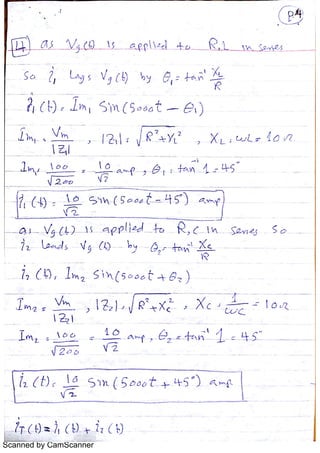 P4
4 as Vg(t) is applied to R,L in series
So i₁ lags Vg(t) by θ₁ = tan⁻¹ XL/R
i₁(t) = Im₁ Sin(5000t - θ₁)
Im₁ = Vm/|Z₁| , |Z₁| = √R²+XL² , XL = ωL = 10 Ω
Im₁ = 100/√200 = 10/√2 amp , θ₁ = tan⁻¹ 1 = 45°
i₁(t) = 10/√2 Sin(5000t - 45°) amp
as Vg(t) is applied to R,C in series So
i₂ leads Vg(t) by θ₂ = tan⁻¹ Xc/R
i₂(t) = Im₂ Sin(5000t + θ₂)
Im₂ = Vm/|Z₂| , |Z₂| = √R²+Xc² , Xc = 1/ωC = 10 Ω
Im₂ = 100/√200 = 10/√2 amp , θ₂ = tan⁻¹ 1 = 45°
i₂(t) = 10/√2 Sin(5000t + 45°) amp
iT(t) = i₁(t) + i₂(t)
Scanned by CamScanner